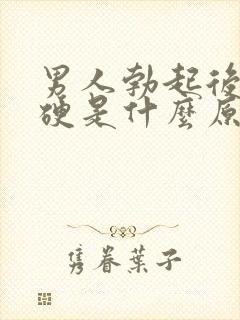 男人勃起後
硬是什麼原
隽眷葉子